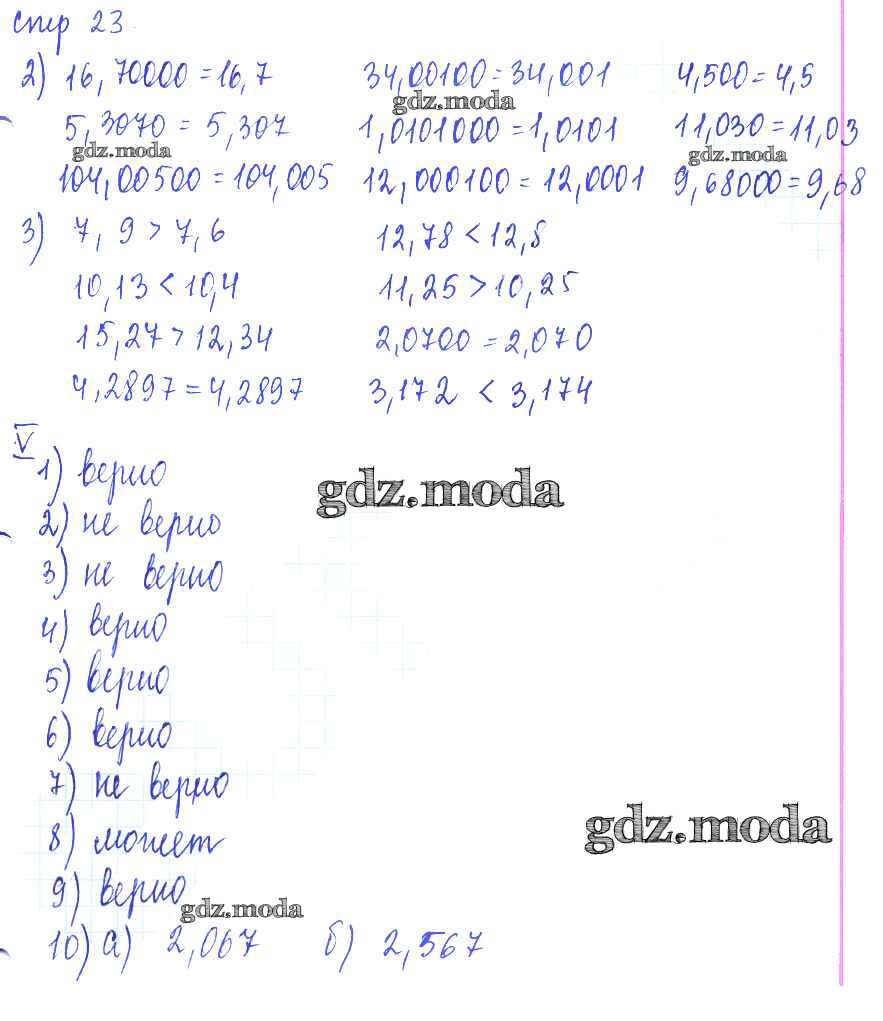 стр 23
2) 16,70000 = 16,7 34,00100 = 34,001 4,500 = 4,5
gdz.moda
5,3070 = 5,307 1,0101000 = 1,0101 11,030 = 11,03
gdz.moda gdz.moda
104,00500 = 104,005 12,000100 = 12,0001 9,68000 = 9,68
3) 7,9 > 7,6 12,78 < 12,8
10,13 < 10,4 11,25 > 10,25
15,27 > 12,34 2,0700 = 2,070
4,2897 = 4,2897 3,172 < 3,174
V
1) верно
gdz.moda
2) не верно
3) не верно
4) верно
5) верно
6) верно
7) не верно
gdz.moda
8) может
9) верно
gdz.moda
10) а) 2,067 б) 2,567